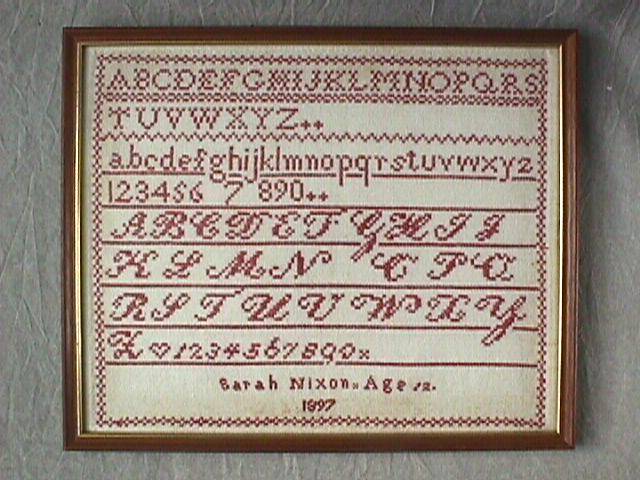 ABCDEFGHIJKLMNOPQRS
TUVWXYZ++
abcdefghijklmnopqrstuvwxyz
123456 7 890++
ABCDEFGHIJ
KLMNOPQ
RSTUVWXY
Z♡1234567890x
Sarah Nixon x Age 12.
1897